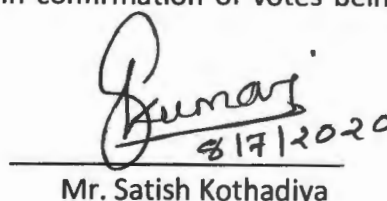 in confirmation of votes bein
8/7/2020
Mr. Satish Kothadiya